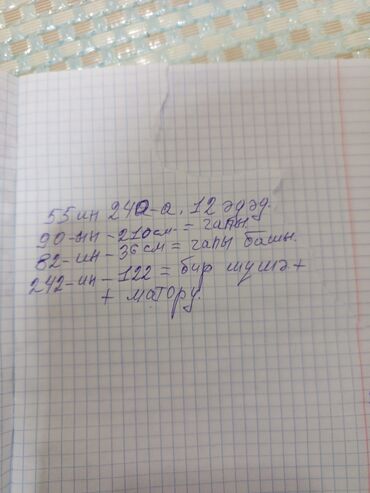 55 ин 240-а. 12 әдәд.
90-ын - 210см = гапы.
82-ин - 36см = гапы башы.
242-ин - 122 = бир шүшә +
+ матору.